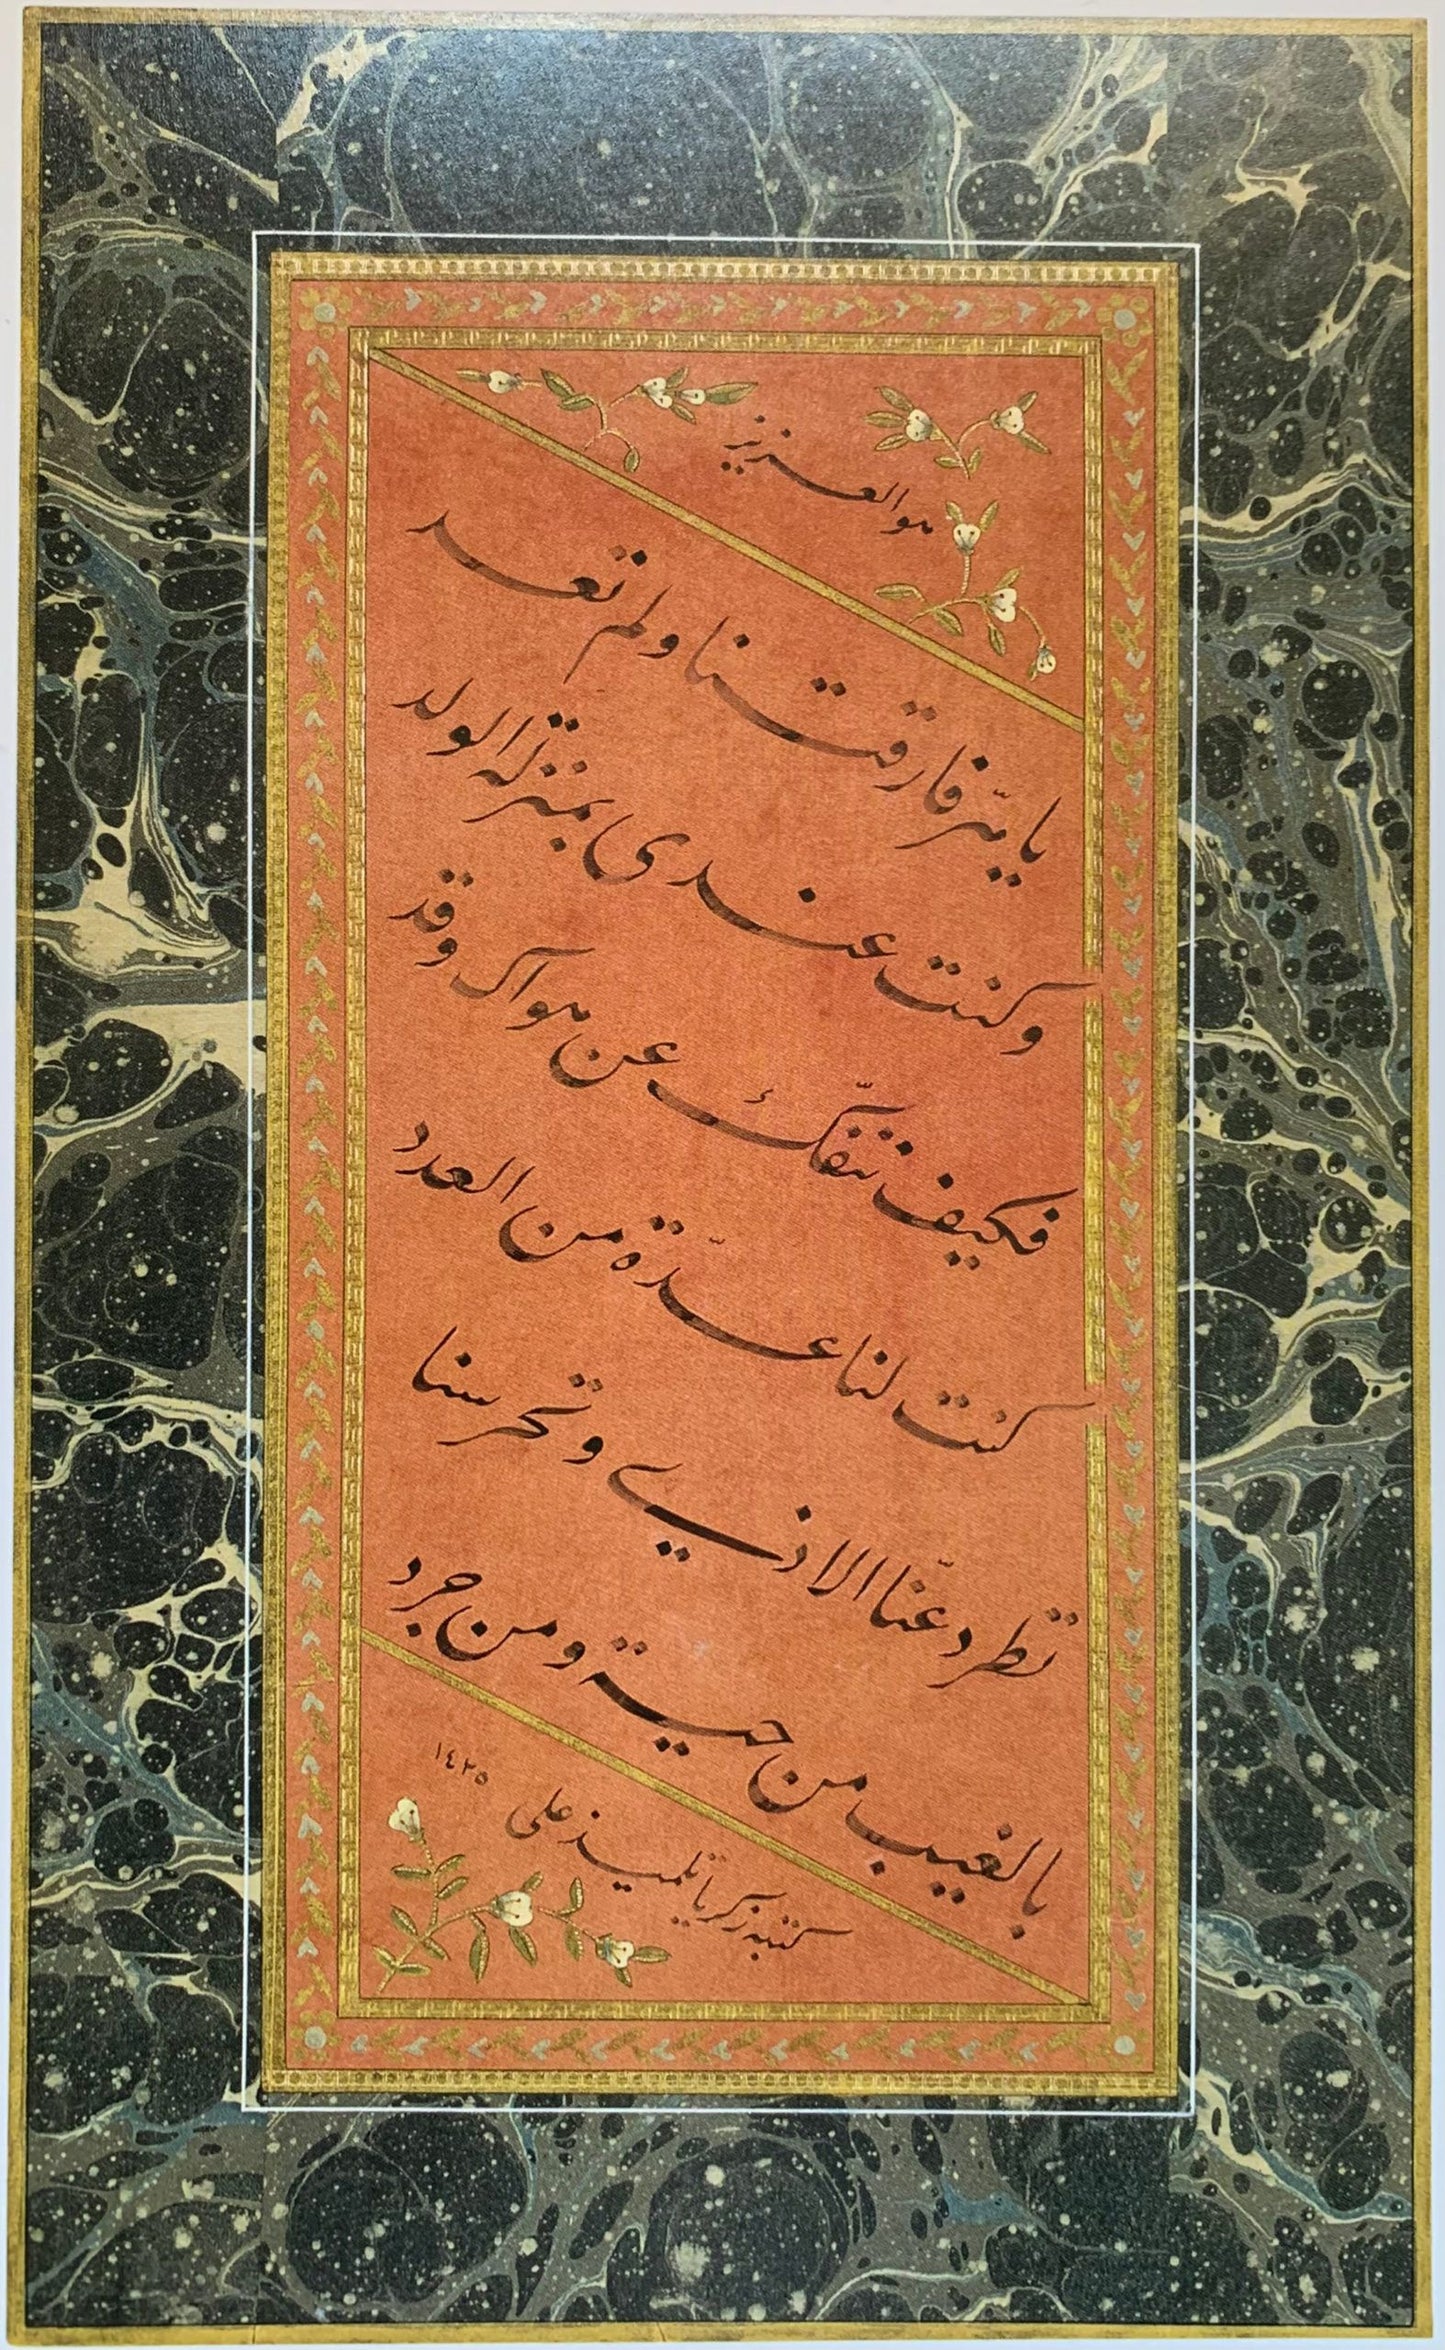 هو العزيز
يا هرّ فارقتنا ولم تعد
وكنت عندى بمنزلة الولد
فكيف ننفكّ عن هواك وقد
كنت لنا عدّة من العدد
تطرد عنّا الاذي وتحرسنا
بالغيب من حية ومن جرد
كتبه زكريا تلميذ على
١٤٢٥